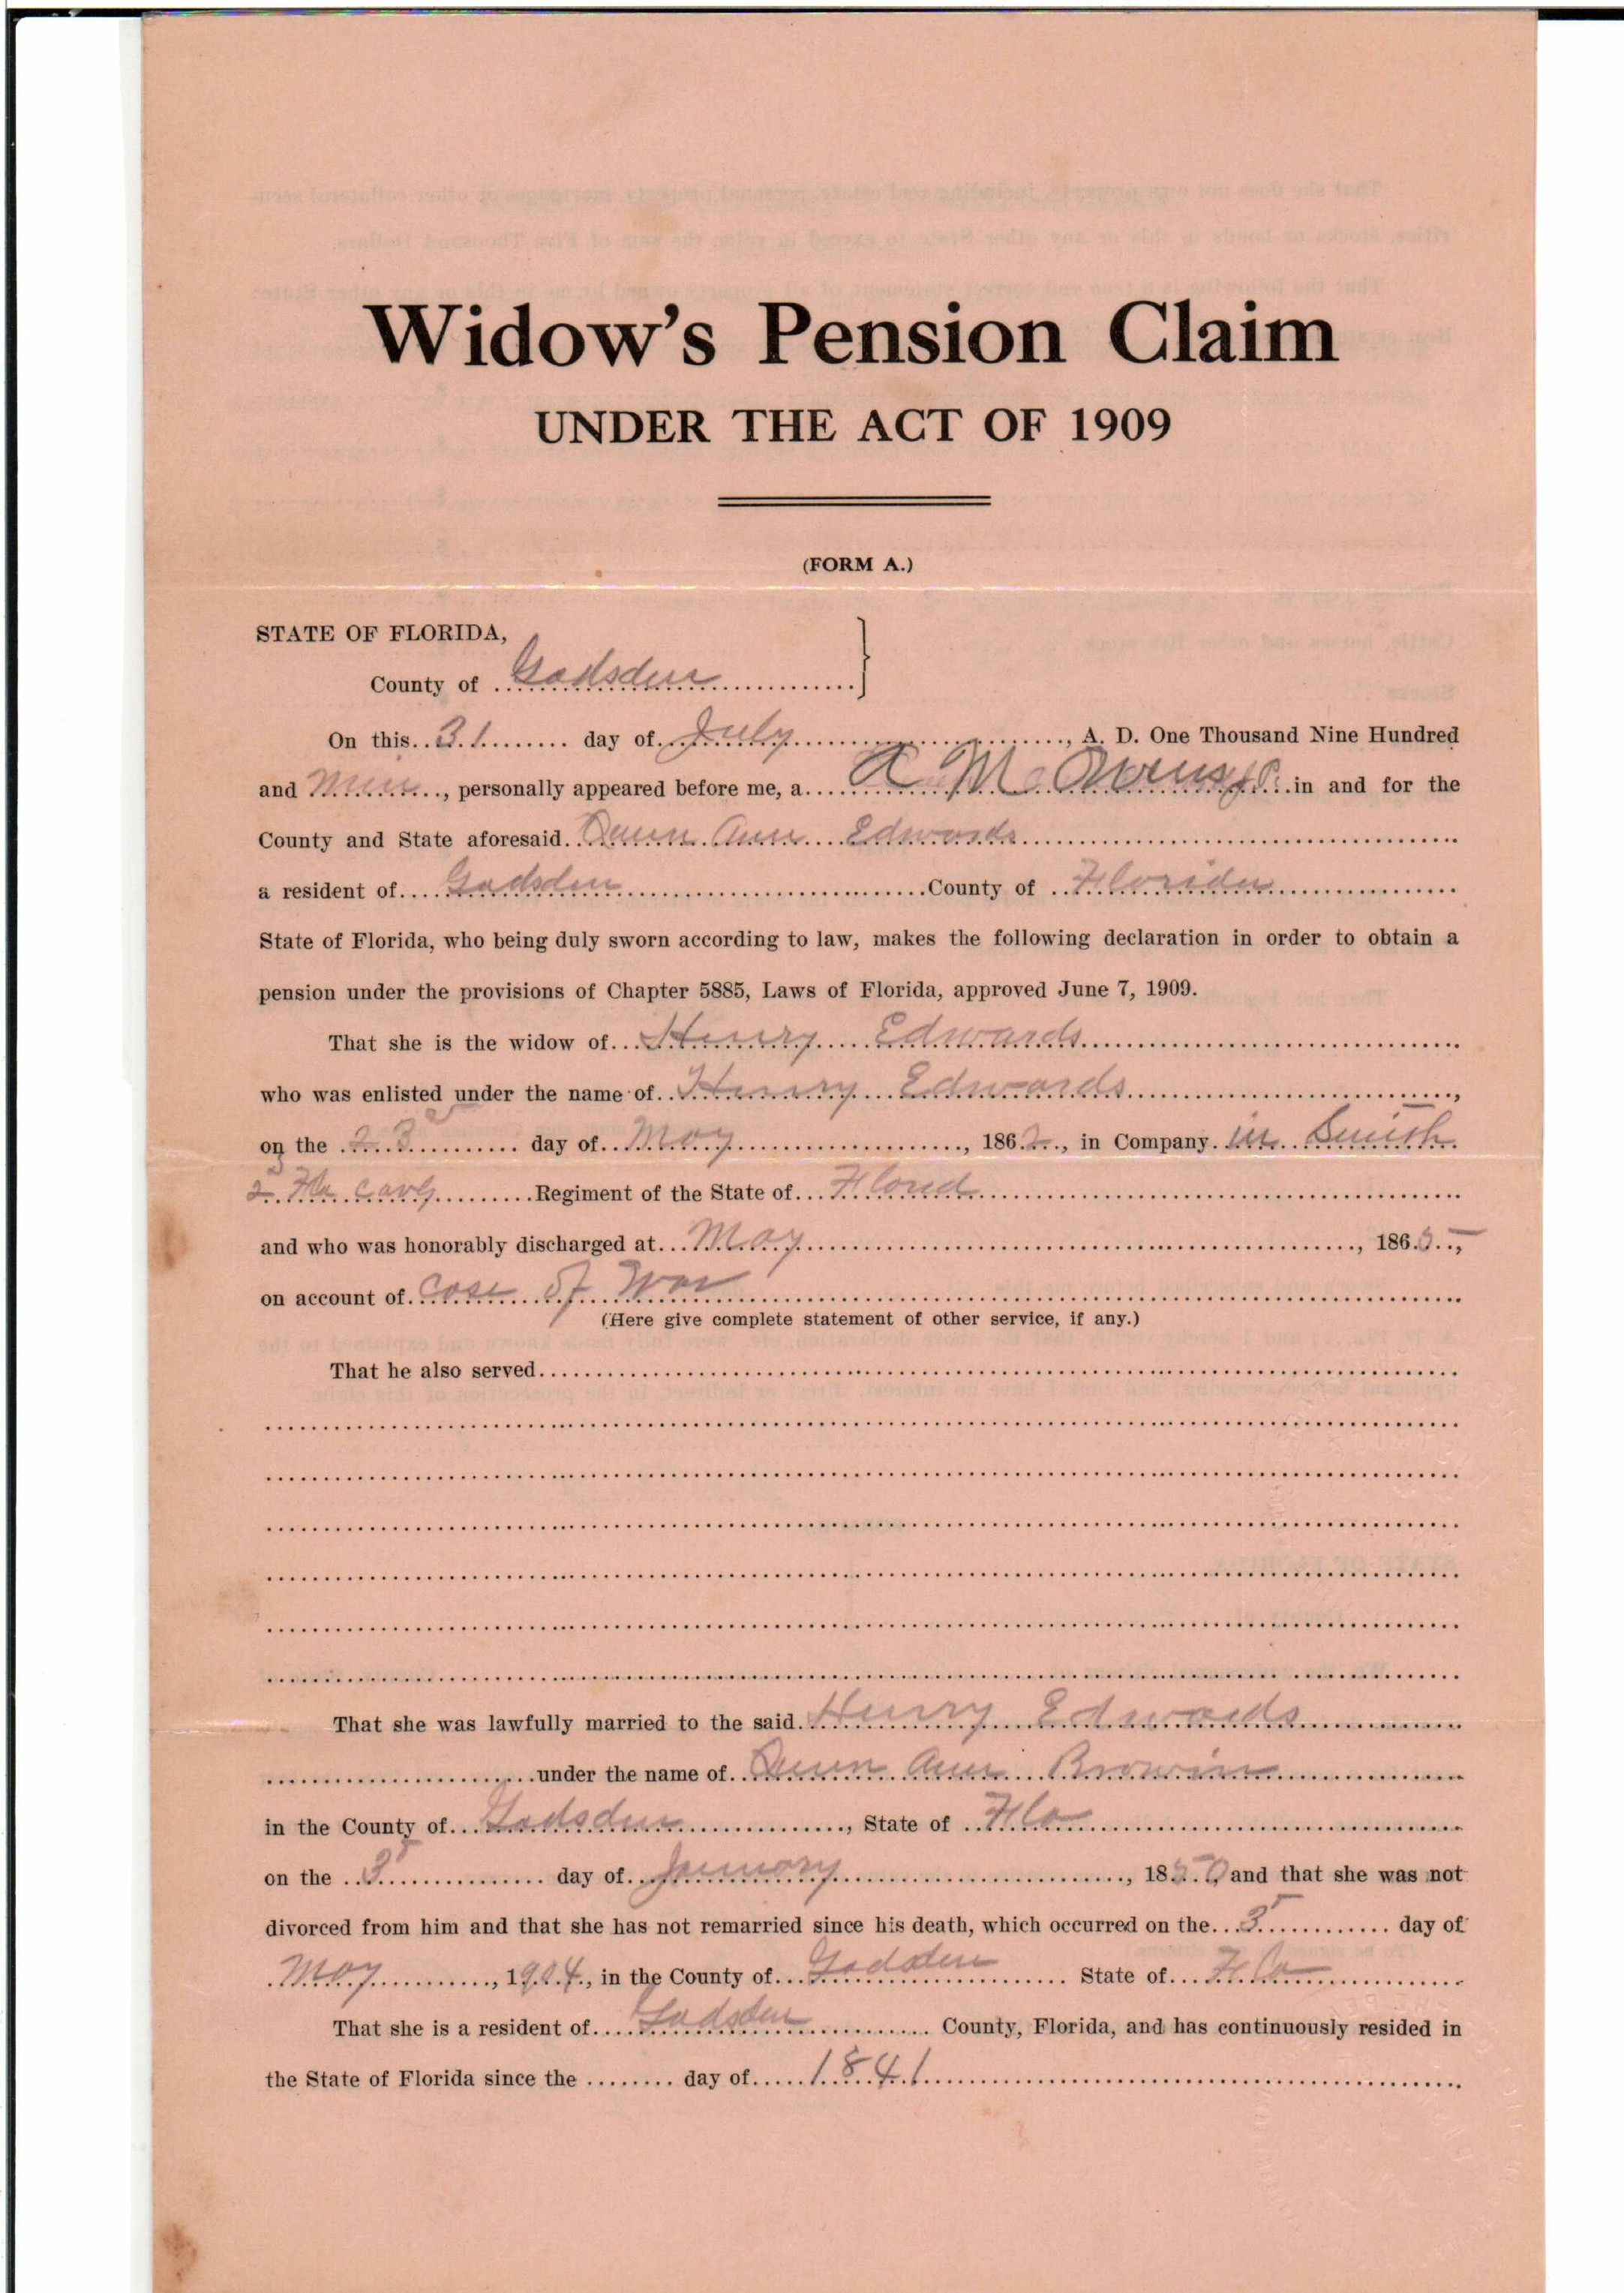 Widow's Pension Claim
UNDER THE ACT OF 1909
(FORM A.)
STATE OF FLORIDA,
County of Gadsden
On this 31 day of July, A. D. One Thousand Nine Hundred
and personally appeared before me, a A M in and for the
County and State aforesaid Ann Edwards
a resident of Gadsden County of Florida
State of Florida, who being duly sworn according to law, makes the following declaration in order to obtain a
pension under the provisions of Chapter 5885, Laws of Florida, approved June 7, 1909.
That she is the widow of Henry Edwards
who was enlisted under the name of Henry Edwards,
on the day of May, 1862, in Company in
2 Fla cavy Regiment of the State of Florid
and who was honorably discharged at May, 1865,
on account of of War
(Here give complete statement of other service, if any.)
That he also served
That she was lawfully married to the said Henry Edwards
under the name of Ann
in the County of Gadsden, State of Fla
on the day of January, 18 and that she was not
divorced from him and that she has not remarried since his death, which occurred on the day of
May, 1904, in the County of Gadsden State of Fla
That she is a resident of Gadsden County, Florida, and has continuously resided in
the State of Florida since the day of 1841